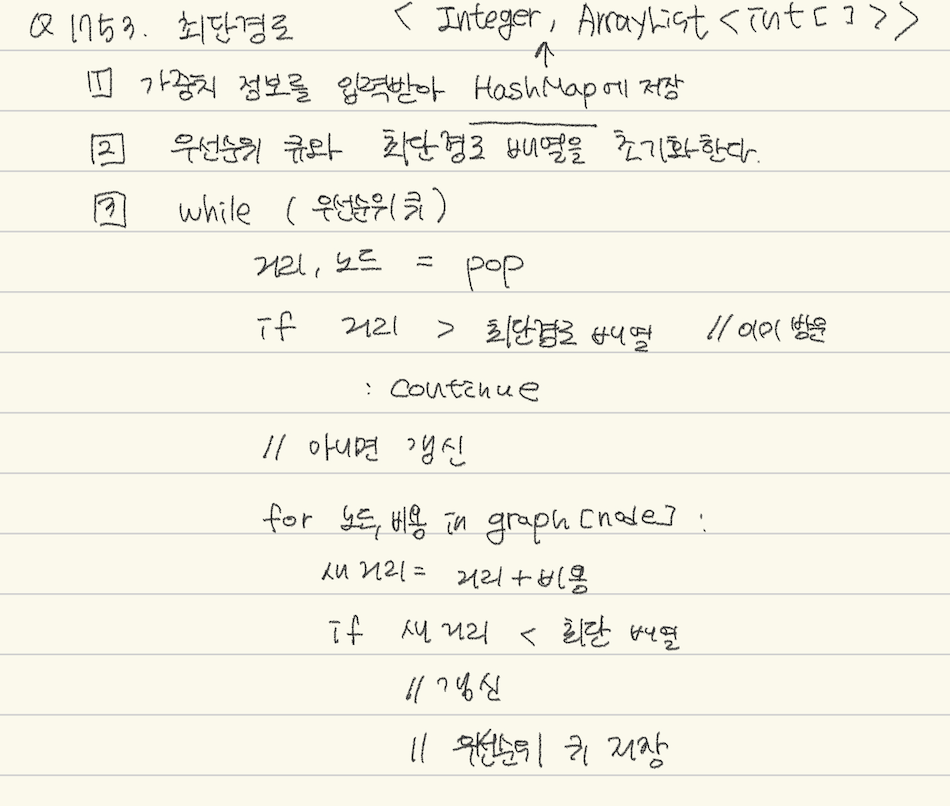 Q 1753. 최단경로 < Integer, ArrayList <int[]>>
1 가중치 정보를 입력받아 HashMap에 저장
2 우선순위 큐와 최단경로 배열을 초기화한다.
3 while (우선순위 큐)
거리, 노드 = pop
if 거리 > 최단경로 배열 // 이미 방문
: continue
// 아니면 갱신
for 노드, 비용 in graph[node] :
새 거리 = 거리 + 비용
if 새 거리 < 최단 배열
// 갱신
// 우선순위 큐 저장